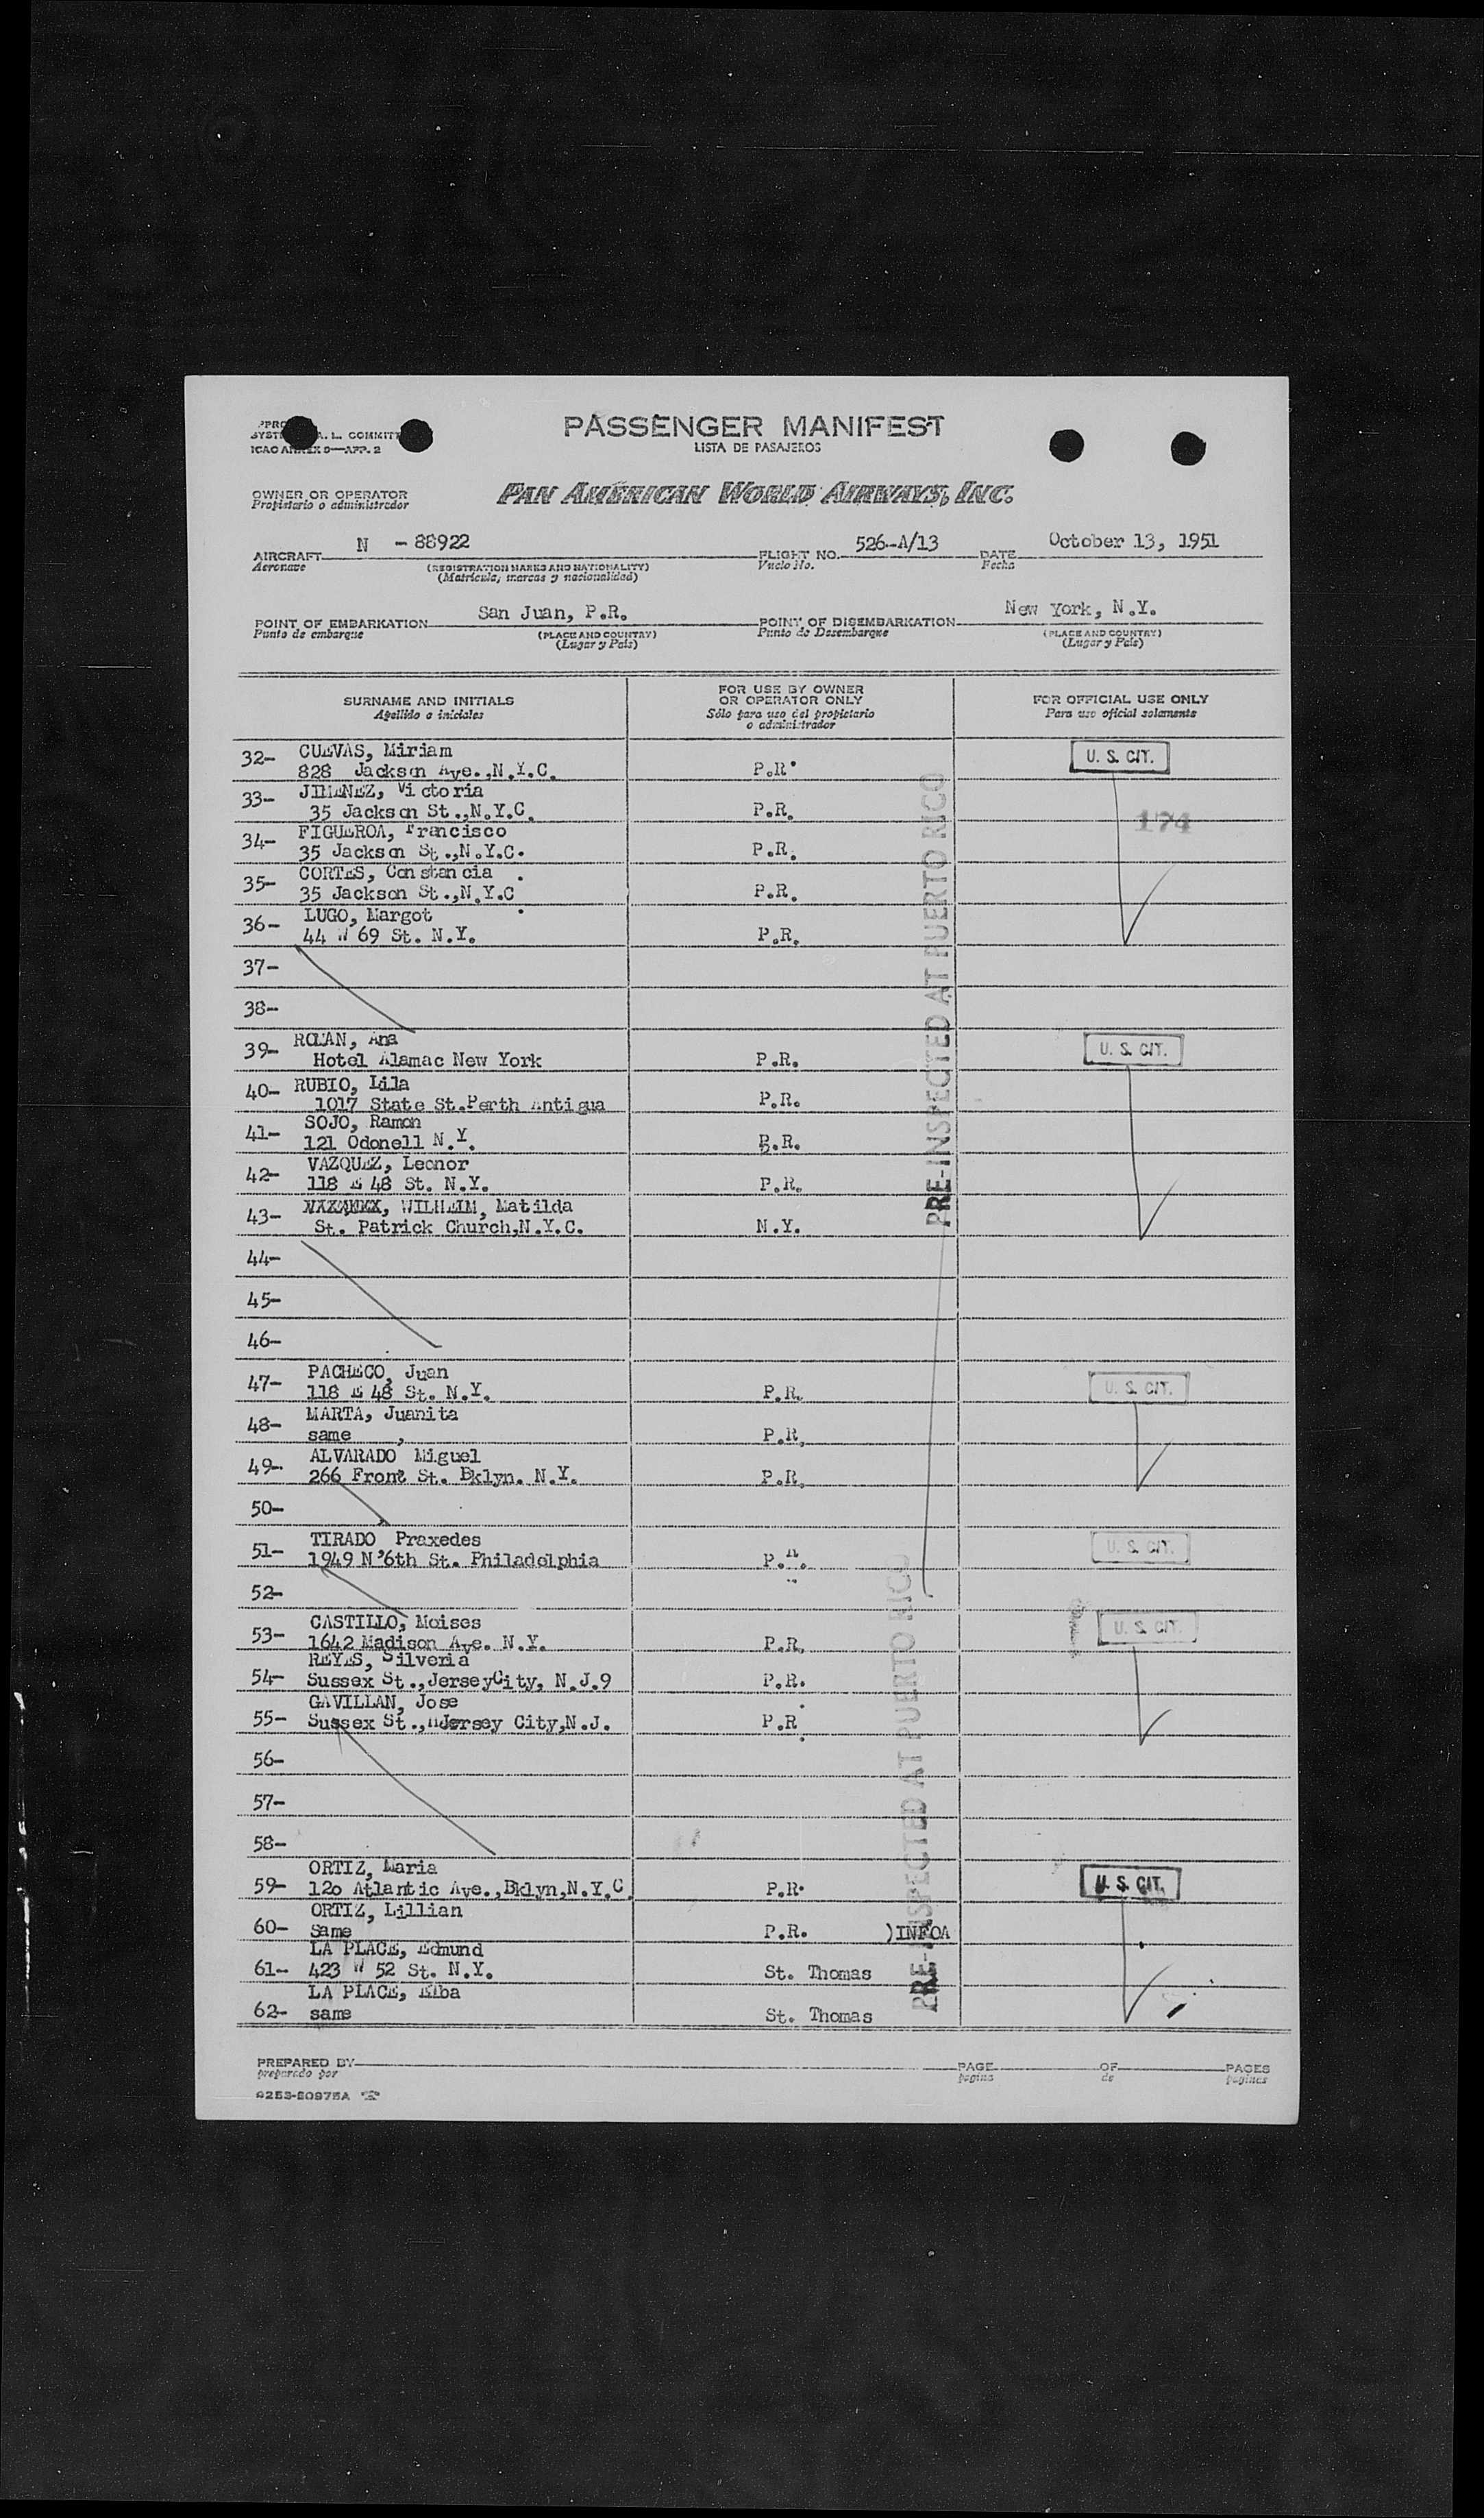 PASSENGER MANIFEST
LISTA DE PASAJEROS
ICAO ANNEX 9—APP. 2
OWNER OR OPERATOR
Propietario o administrador
PAN AMERICAN WORLD AIRWAYS, INC.
AIRCRAFT N - 88922 FLIGHT NO. 526-A/13 DATE October 13, 1951
Aeronave (REGISTRATION MARKS AND NATIONALITY) Vuelo No. Fecha
(Matricula, marcas y nacionalidad)
POINT OF EMBARKATION San Juan, P.R. POINT OF DISEMBARKATION New York, N.Y.
Punto de embarque (PLACE AND COUNTRY) Punto de Desembarque (PLACE AND COUNTRY)
(Lugar y Pais) (Lugar y Pais)
SURNAME AND INITIALS
Apellido e iniciales
FOR USE BY OWNER
OR OPERATOR ONLY
Sólo para uso del propietario
o administrador
FOR OFFICIAL USE ONLY
Para uso oficial solamente
32- CUEVAS, Miriam U. S. CIT.
828 Jackson Ave.,N.Y.C. P.R.
33- JIMENEZ, Victoria
35 Jackson St.,N.Y.C. P.R. 174
34- FIGUEROA, Francisco
35 Jackson St.,N.Y.C. P.R.
35- CORTES, Constancia
35 Jackson St.,N.Y.C. P.R.
36- LUGO, Margot
44 W 69 St. N.Y. P.R.
37-
38-
39- ROMAN, Ana U. S. CIT.
Hotel Alamac New York P.R.
40- RUBIO, Lila
1017 State St.Perth Antigua P.R.
41- SOJO, Ramon
121 Odonell N.Y. P.R.
42- VAZQUEZ, Leonor
118 E 48 St. N.Y. P.R.
43- WILHEIM, Matilda
St. Patrick Church,N.Y.C. N.Y.
PRE-INSPECTED AT PUERTO RICO
44-
45-
46-
47- PACHECO, Juan U. S. CIT.
118 E 48 St. N.Y. P.R.
48- MARTA, Juanita
same , P.R.
49- ALVARADO Miguel
266 Front St. Bklyn. N.Y. P.R.
50-
51- TIRADO Praxedes U. S. CIT.
1949 N'6th St. Philadelphia P.R.
52-
53- CASTILLO, Moises U. S. CIT.
1642 Madison Ave. N.Y. P.R.
54- REYES, Silveria
Sussex St.,JerseyCity, N.J.9 P.R.
55- GAVILLAN, Jose
Sussex St., Jersey City,N.J. P.R.
56-
57-
58-
59- ORTIZ, Maria U. S. CIT.
12o Atlantic Ave.,Bklyn,N.Y.C P.R.
60- ORTIZ, Lillian
Same P.R. )INFOA
61- LA PLACE, Edmund
423 W 52 St. N.Y. St. Thomas
62- LA PLACE, Elba
same St. Thomas
PRE-INSPECTED AT PUERTO RICO
PREPARED BY PAGE OF PAGES
preparado por pagina de paginas